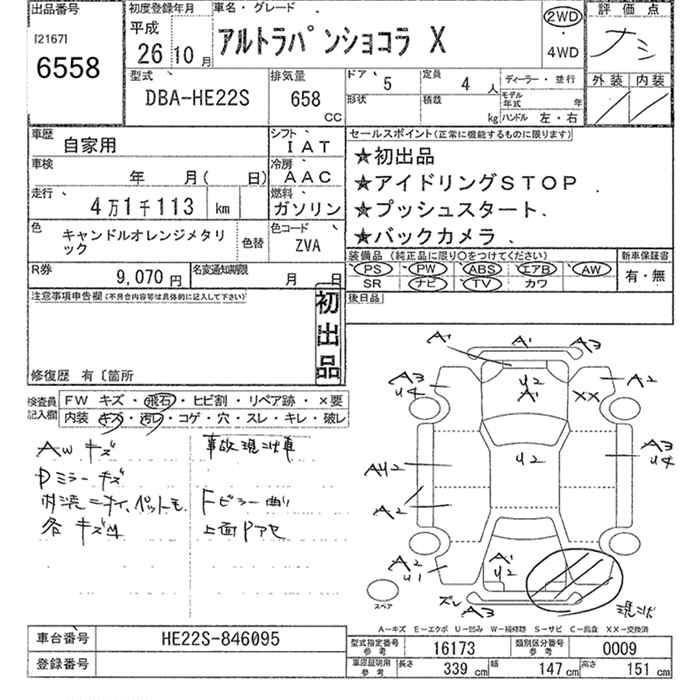 出品番号
[2167]
6558
初度登録年月
平成
26年10月
車名・グレード
アルトラパンショコラ X
2WD
・
4WD
評価点
ナシ
外装 内装
型式
DBA-HE22S
排気量
658
CC
ドア 5
定員 4 人
形状
積載 kg
ディーラー・並行
モデル年式 年
ハンドル 左・右
車歴 自家用
シフト IAT
車検 年 月( 日)
冷房 AAC
走行 4万1千113 km
燃料 ガソリン
色 キャンドルオレンジメタリ
ック
色替
色コード ZVA
R券 9,070 円
名変通知期限 月 日
セールスポイント(正常に機能するものに限ります)
★初出品
★アイドリングSTOP
★プッシュスタート
★バックカメラ
装備品(純正品に限り○をつけてください)
PS PW ABS エアB AW
SR ナビ TV カワ
新車保証書
有・無
後日品
注意事項申告欄(不具合内容等は具体的に記入して下さい)
初出品
修復歴 有〔箇所
検査員
記入欄
FW キズ・飛石・ヒビ割・リペア跡・×要
内装・キズ・汚レ・コゲ・穴・スレ・キレ・破レ
AW キズ
Dミラーキズ
各キズM
事故現状車
Fピラー曲り
上面Pアセ
A1 A1 A3
A3 U4
U2 A1
A2
XX
AU2
U2
A3 U4
A2
A2 U1
A1 U2
ズレ A3
現状
スペア
A-キズ E-エクボ U-凹み W-補修跡 S-サビ C-腐食 XX-交換済
車台番号 HE22S-846095
登録番号
型式指定番号 参考 16173
類別区分番号 参考 0009
車庫証明用 参考 長さ 339 cm 幅 147 cm 高さ 151 cm